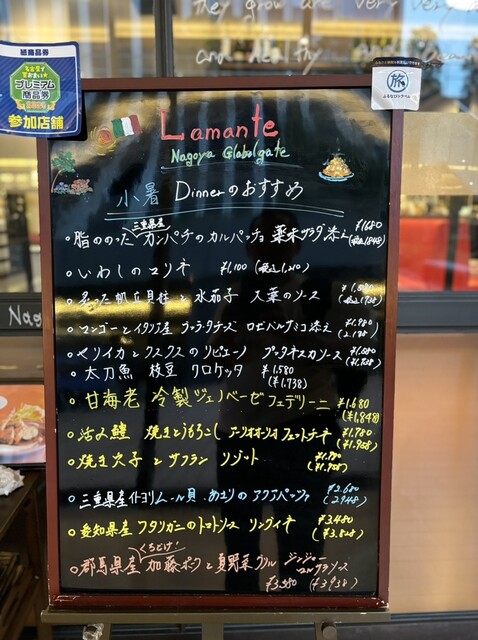 they grow are very very
and healthy
紙商品券
名古屋で買おまい★
プレミアム
商品券
参加店舗
旅
ふるなびトラベル
Lamante
Nagoya Globalgate
小暑 Dinnerのおすすめ
三重県産
・脂ののった カンパチのカルパッチョ 薬味サラダ添え ¥1680
(税込1,848)
・いわしのマリネ ¥1,100 (税込1,210)
・炙った帆立貝柱と水茄子 大葉のソース ¥1,580
(税込1,738)
・マンゴーとイタリア産 ブッラータチーズ ロゼバルサミコ添え ¥1,980
(2,178)
・ヤリイカとクスクスのリピエーノ プッタネスカソース
・太刀魚 枝豆 クロケッタ ¥1.580
(¥1.738)
・甘海老 冷製ジェノベーゼ フェデリーニ ¥1.680
(¥1,848)
・活〆鱧 焼きとうもろこし アーリオオーリオ フェットチーネ ¥1.780
(¥1.958)
・焼き穴子とサフラン リゾット ¥1.780
(¥1.958)
・三重県産イトヨリ ムール貝 あさりのアクアパッツァ ¥2.680
(2948)
・愛知県産 ワタリガニのトマトソース リングイネ ¥3.480
(¥3.828)
くちどけ!
・群馬県産 加藤ポークと夏野菜グリル ジンジャー
ソース
¥3,580 (¥3938)
Nag